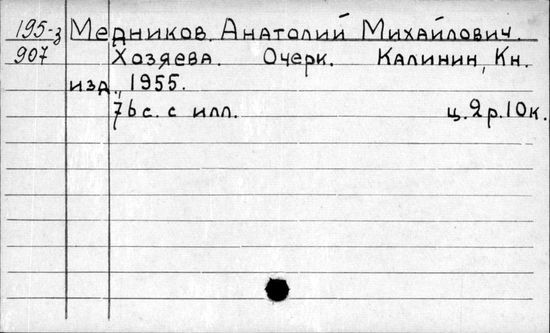 195-3 Медников, Анатолий Михайлович.
907 Хозяева. Очерк. Калинин, Кн.
изд., 1955.
76 с. с илл. ц. 2 р. 10 к.